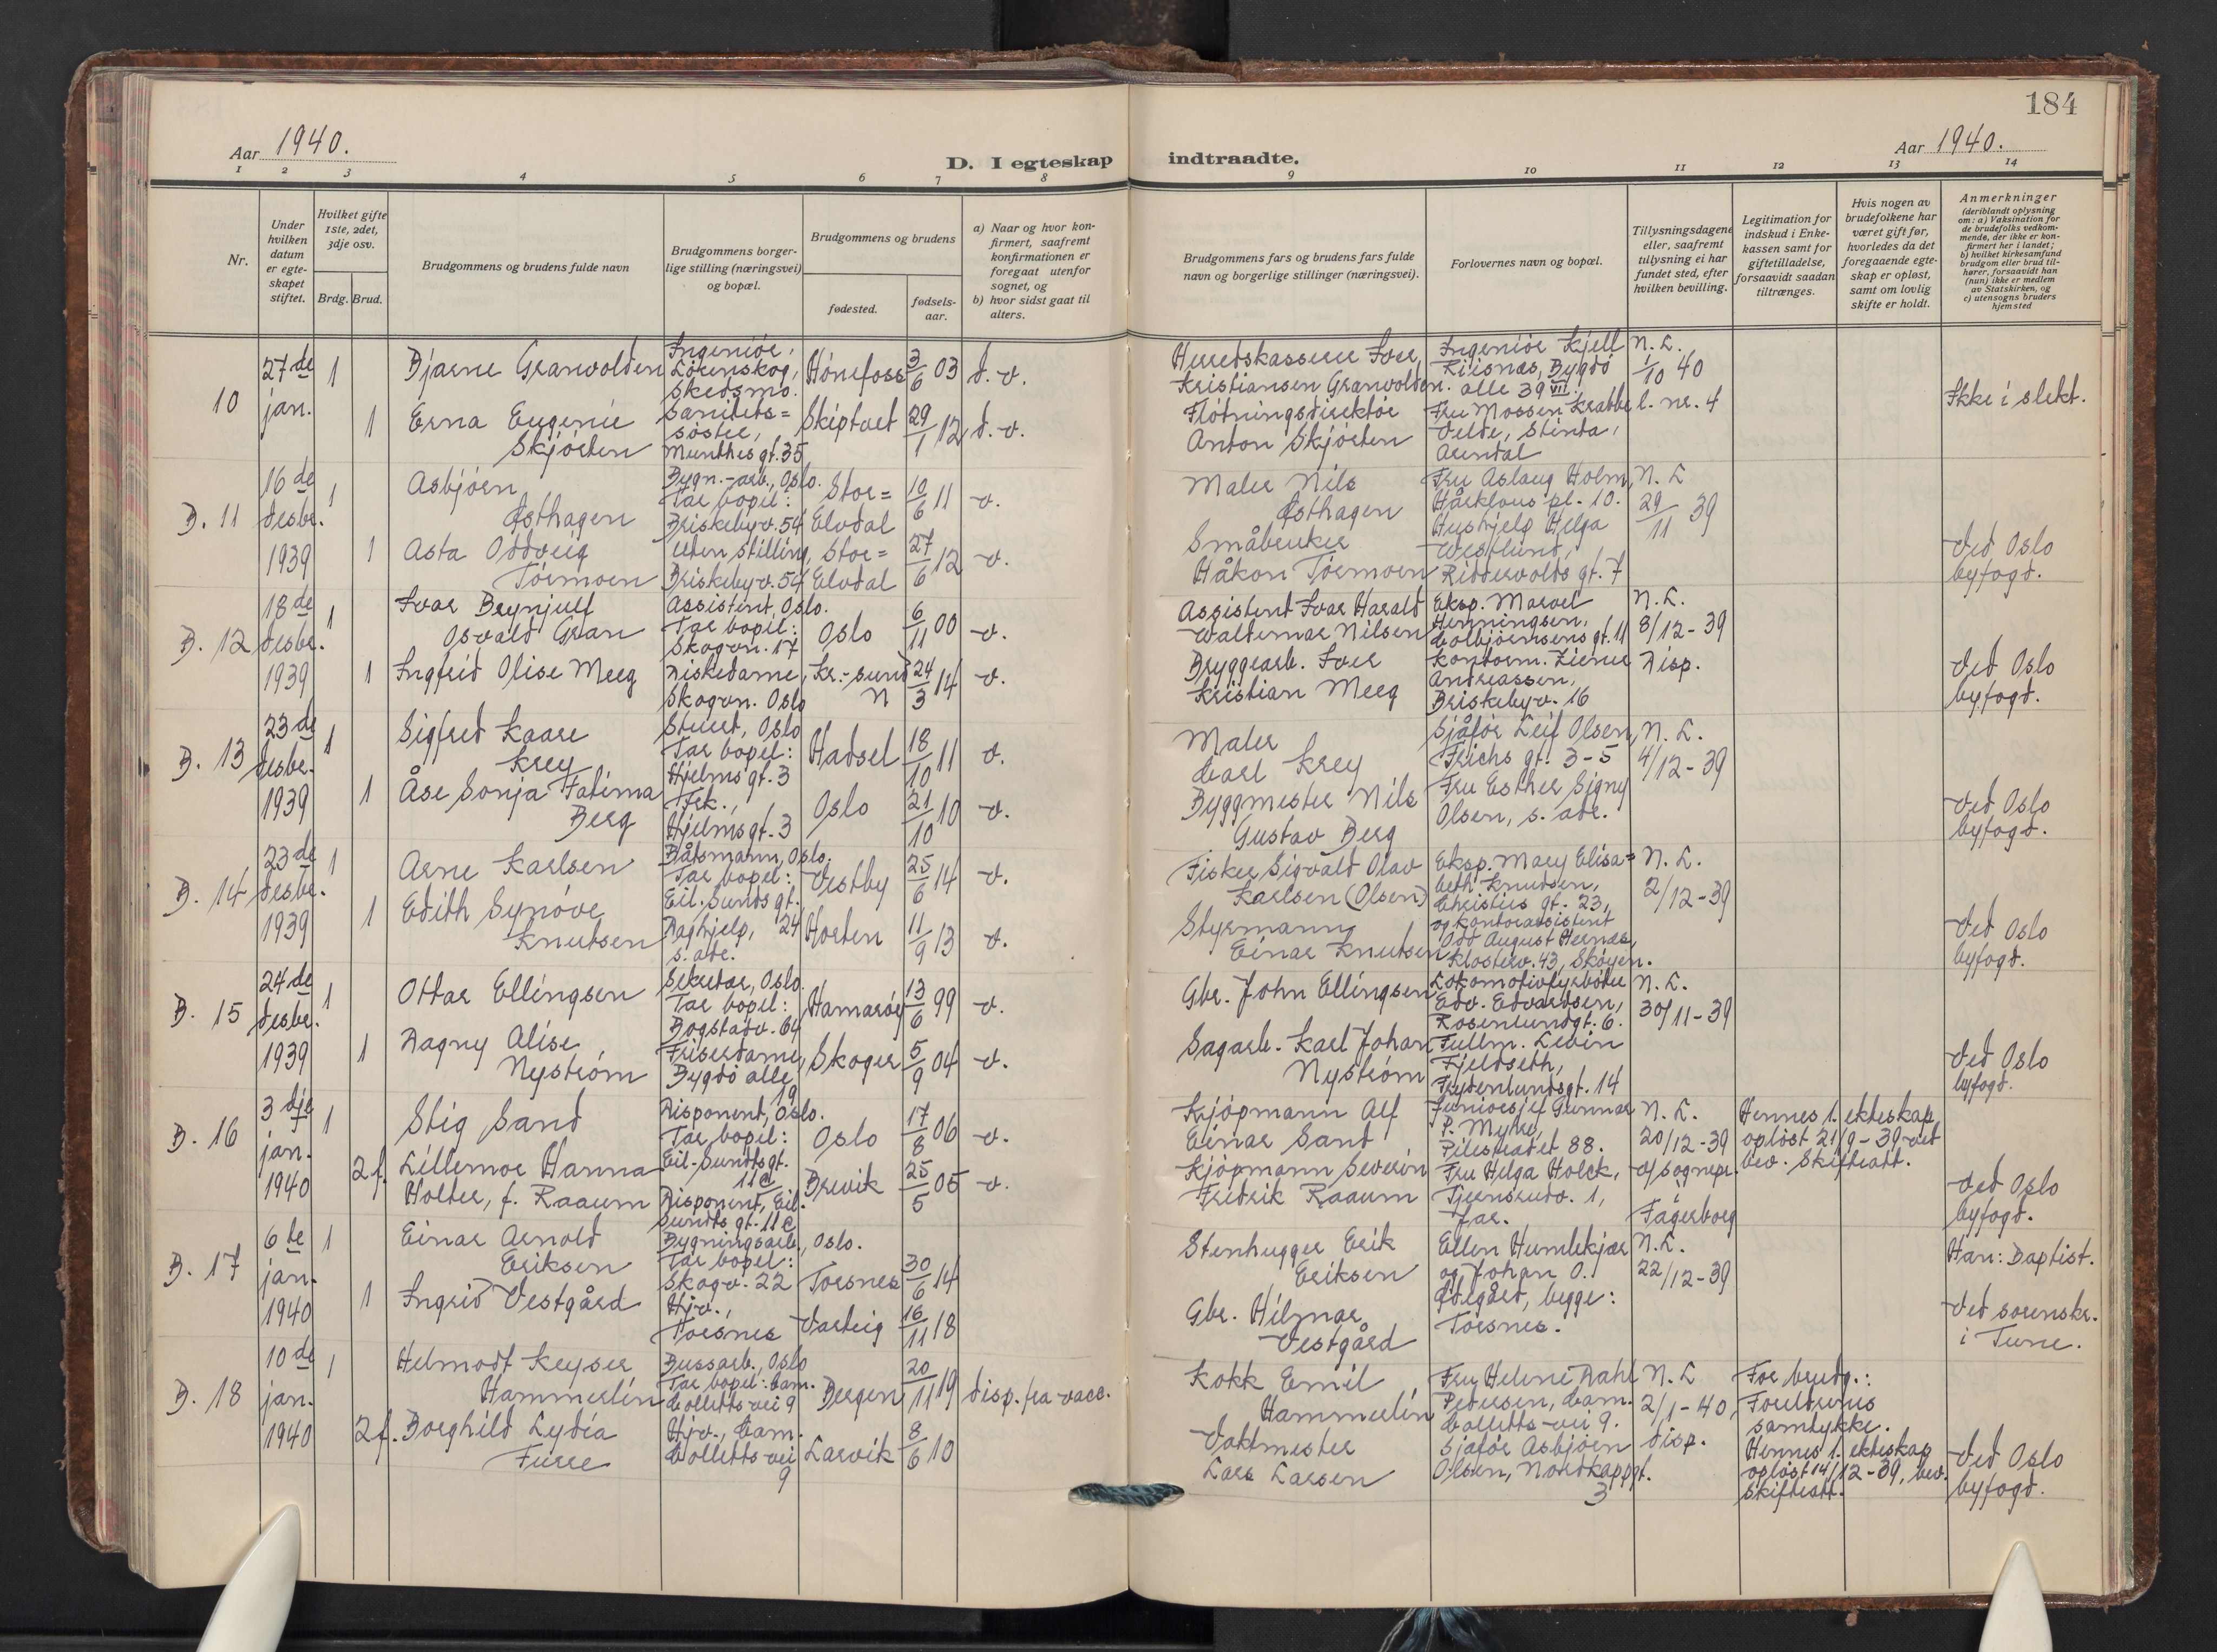 184
Aar 1940.
D. I egteskap indtraadte.
Aar 1940.
1 2 3 4 5 6 7 8 9 10 11 12 13 14
Nr.
Under hvilken datum er egte-skapet stiftet.
Hvilket gifte 1ste, 2det, 3dje osv.
Brdg. Brud.
Brudgommens og brudens fulde navn
Brudgommens borger-lige stilling (næringsvei) og bopæl.
Brudgommens og brudens
fødested.
fødsels-aar.
a) Naar og hvor kon-firmert, saafremt konfirmationen er foregaat utenfor sognet, og
b) hvor sidst gaat til alters.
Brudgommens fars og brudens fars fulde navn og borgerlige stillinger (næringsvei).
Forlovernes navn og bopæl.
Tillysningsdagene eller, saafremt tillysning ei har fundet sted, efter hvilken bevilling.
Legitimation for indskud i Enke-kassen samt for giftetilladelse, forsaavidt saadan tiltrænges.
Hvis nogen av brudefolkene har været gift før, hvorledes da det foregaaende egte-skap er opløst, samt om lovlig skifte er holdt.
Anmerkninger (deriblandt oplysning om: a) Vaksination for de brudefolks vedkom-mende, der ikke er kon-firmert her i landet; b) hvilket kirkesamfund brudgom eller brud til-hører, forsaavidt han (hun) ikke er medlem av Statskirken, og c) utensogns bruders hjemsted
10
27de jan.
1
Bjarne Granvolden
Ingeniør, Lørenskog, Skedsmo.
Hønefoss
3/6 03
d. v.
Herredskasserer Iver Kristiansen Granvolden.
Ingeniør Kjell Riisnæs, Bygdö alle 39 VII.
N. L. 1/10 40
1
Erna Eugenie Skjörten
Sanitets=söster, Munthes gt. 35
Skiptvet
29/1 12
d. v.
Flötningsdirektör Anton Skjörten
Fru Mossen Krabbe Velde, Stinta, Arendal
l. nr. 4
Ikke i slekt.
B. 11
16de desbr. 1939
1
Asbjørn Østhagen
Bygn.-arb., Oslo. Tar bopel: Briskebyv. 54
Stor=Elvdal
10/6 11
v.
Maler Nils Østhagen
Fru Aslaug Holm, Hårklous pl. 10.
N. L 29/11 39
1
Asta Oddveig Törmoen
uten stilling, Briskebyv. 54
Stor=Elvdal
27/6 12
v.
Småbruker Håkon Törmoen
Hushjelp Helga Westlund, Riddervolds gt. 7
Ved Oslo byfogd.
B. 12
18de desbr. 1939
1
Ivar Brynjulf Osvald Gran
Assistent, Oslo. Tar bopel: Skogvn. 17
Oslo
6/11 00
v.
Assistent Ivar Harald Waldemar Nilsen
Eksp. Marvel Henningsen, Colbjörnsens gt. 11
N. L. 8/12-39
1
Ingfrid Olise Meeg
Diskedame, Skogvn. Oslo
Kr.-sund N
24/3 14
v.
Bryggearb. Iver Kristian Meeg
Kontorm. Zierner Andreassen, Briskebyv. 16
Disp.
Ved Oslo byfogd.
B. 13
23de desbr. 1939
1
Sigfred Kaare Krey
Stuert, Oslo Tar bopel: Hjelms gt. 3
Hadsel
18/10 11
v.
Maler Carl Krey
Sjåför Leif Olsen, Frichs gt. 3-5
N. L. 4/12-39
1
Åse Sonja Fatima Berg
Frk., Hjelms gt. 3
Oslo
21/10 10
v.
Byggmester Nils Gustav Berg
Fru Esther Signy Olsen, s. adr.
Ved Oslo byfogd.
B. 14
23de desbr. 1939
1
Arne Karlsen
Båtsmann, Oslo. Tar bopel: Eil. Sunds gt. 24
Vestby
25/6 14
v.
Fisker Sigvald Olav Karlsen (Olsen)
Eksp. Mary Elisa=beth Knudsen, Christies gt. 23,
N. L. 2/12-39
1
Edith Synöve Knutsen
Daghjelp, s. adr.
Horten
11/9 13
v.
Styrmann Einar Knutsen
og kontorassistent Odd August Hernæs, Klosterv. 43, Skøyen.
Ved Oslo byfogd.
B. 15
24de desbr. 1939
1
Ottar Ellingsen
Sekretær, Oslo. Tar bopel: Bogstadv. 64
Hamaröy
13/6 99
v.
Gbr. John Ellingsen
Lokomotivfyrböter Edv. Edvardsen, Rosenlundgt. 6.
N. L. 30/11-39
1
Dagny Alise Nyström
Friserdame, Bygdö alle 19
Skoger
5/9 04
v.
Sagarb. Karl Johan Nyström
Fullm. Levin Fjeldseth, Frydenlundsgt. 14
Ved Oslo byfogd.
B. 16
3dje jan. 1940
1
Stig Sand
Disponent, Oslo. Tar bopel: Eil. Sundts gt. 11c
Oslo
17/8 06
v.
Kjöpmann Alf Einar Sand
Juniorsjef Gunnar P. Myhre, Pilestredet 88.
N. L. 20/12-39 af sognepr. i Fagerborg
2f.
Lillemor Hanna Holter, f. Raaum
Disponent, Eil. Sundts gt. 11c
Brevik
25/5 05
v.
Kjöpmann Severin Fredrik Raaum
Fru Helga Holck, Tjernsrudv. 1, Jar.
Hennes 1. ekteskap oplöst 21/9-39 ved bev. Skifteatt.
Ved Oslo byfogd.
B. 17
6te jan. 1940
1
Einar Arnold Eriksen
Bygningsarb., Oslo. Tar bopel: Skogv. 22
Torsnes
30/6 14
Stenhugger Erik Eriksen
Ellen Humlekjær og Johan O. Ødegård, begge: Torsnes.
N. L. 22/12-39
Han: Baptist.
1
Ingrid Vestgård
Hjv., Torsnes
Varteig
16/11 18
Gbr. Hilmar Vestgård
Ved sorenskr. i Tune.
B. 18
10de jan. 1940
1
Helmodt Keyser Hammerlin
Bussarb., Oslo Tar bopel: Cam. Colletts vei 9
Bergen
20/11 19
disp. fra vacc.
Kokk Emil Hammerlin
Fru Helene Dahl Pedersen, Cam. Colletts-vei 9.
N. L 2/1-40
For brudg.: Foreldrenes samtykke.
2f.
Borghild Lydia Furre
Hjv., Cam. Colletts-vei 9
Larvik
8/6 10
Vaktmester Lars Larsen
Sjåför Asbjörn Olsen, Nordkappgt. 3
disp.
Hennes 1. ekteskap oplöst 14/12-39, bev. Skifteatt.
Ved Oslo byfogd.